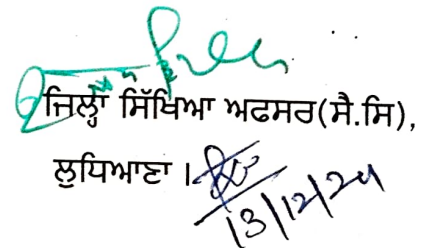 ਜਿਲ੍ਹਾ ਸਿੱਖਿਆ ਅਫਸਰ(ਸੈ.ਸਿ),
ਲੁਧਿਆਣਾ ।
13/12/24